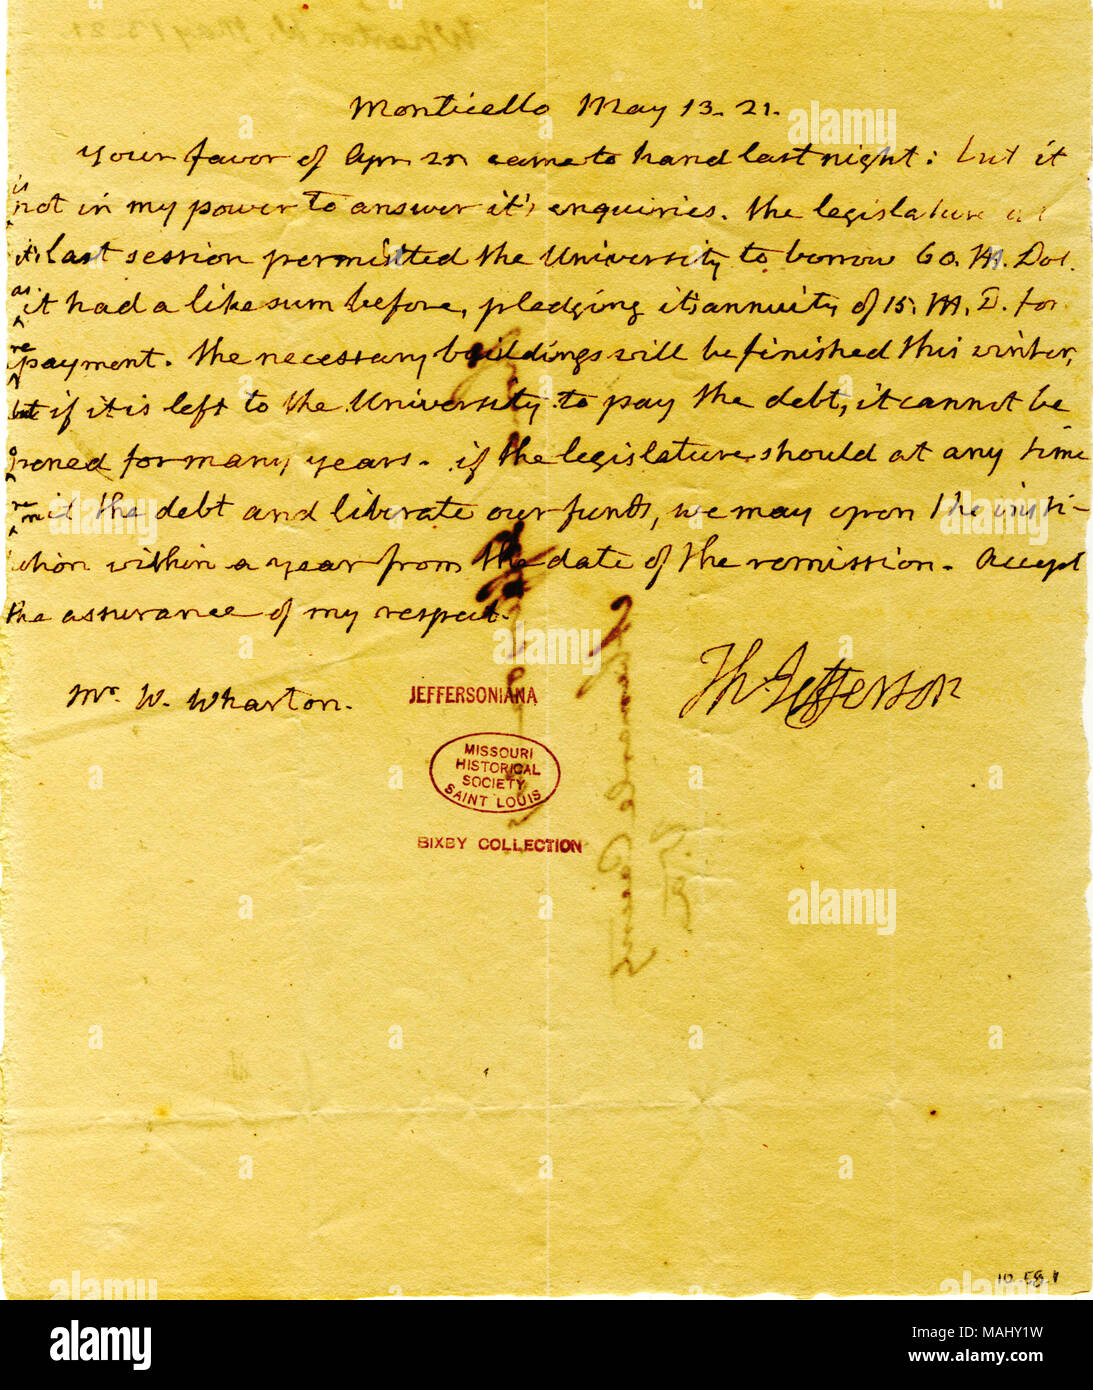 Monticello May 13. 21.
Your favor of Apr. 25 came to hand last night: but it
is
not in my power to answer it's enquiries. the legislature at
it's last session permitted the University to borrow 60. M. Dol.
as
it had a like sum before, pledging it's annuity of 15. M. D. for
re
payment. the necessary buildings will be finished this winter,
but if it is left to the University to pay the debt, it cannot be
opened for many years. if the legislature should at any time
re
mit the debt and liberate our funds, we may open the insti-
tution within a year from the date of the remission. Accept
the assurance of my respect.
Th: Jefferson
Mr. W. Wharton.
JEFFERSONIANA
MISSOURI
HISTORICAL
SOCIETY
SAINT LOUIS
BIXBY COLLECTION
alamy
Image ID: MAHY1W
www.alamy.com